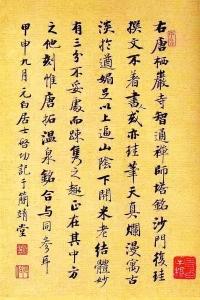 右唐栖巖寺智通禪師塔銘沙門復珪
撰文不著書或亦珪筆天真爛漫寓古
淡於遒媚足以上逼山陰下開米老結體妙
有三分不妥處而疎雋之趣正在其中方
之他刻惟唐拓温泉銘合與同參耳
甲申九月元白居士啓功記于簡靖堂